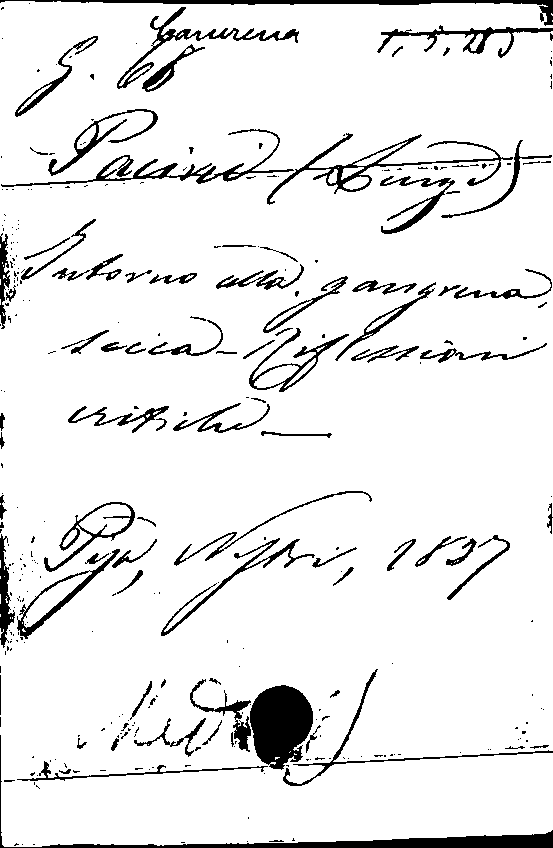 Cancrena 1, 5, 285
G. 68
Pacini (Luigi)
Intorno alla gangrena
secca - Riflessioni
critiche
Pisa, Nistri, 1837